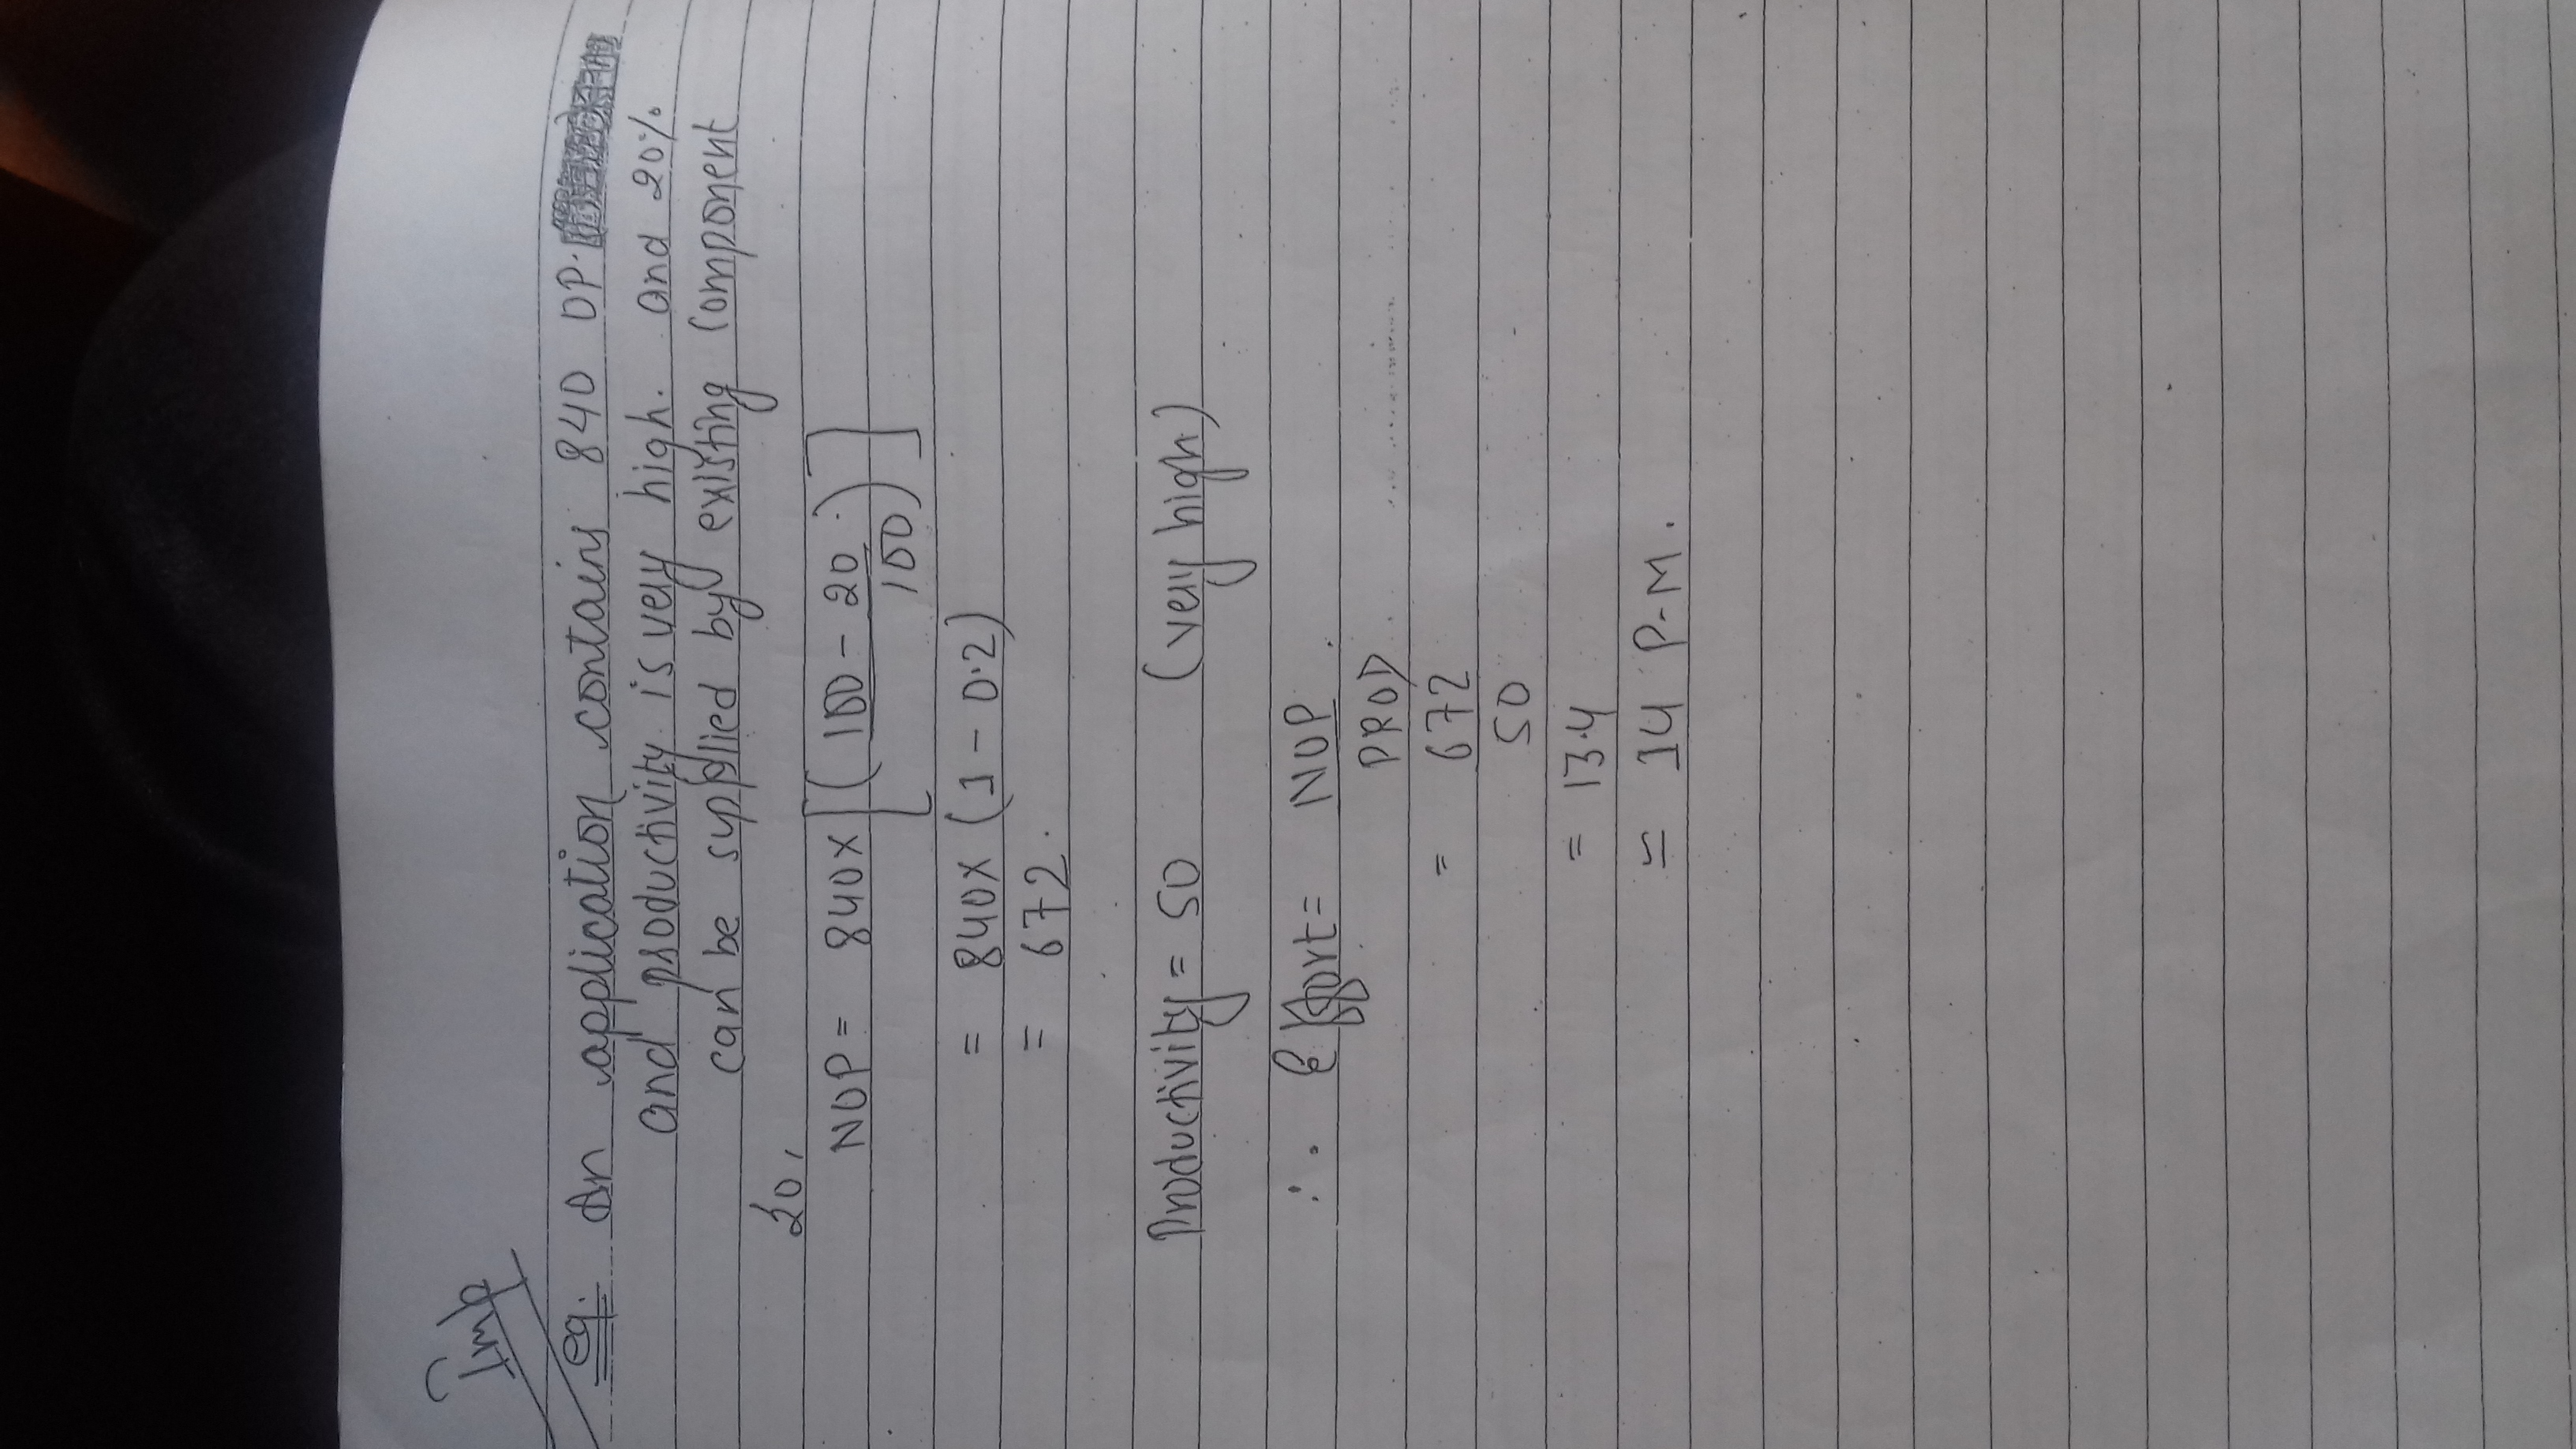 Imp
eg. An application contains 840 OP.
and productivity is very high. and 20%
can be supplied by existing component
So,
NOP = 840 x [(100 - 20
100)]
= 840 x (1 - 0.2)
= 672.
Productivity = 50 (very high)
∴ Effort = NOP
PROD
= 672
50
= 13.4
≃ 14 P-M.